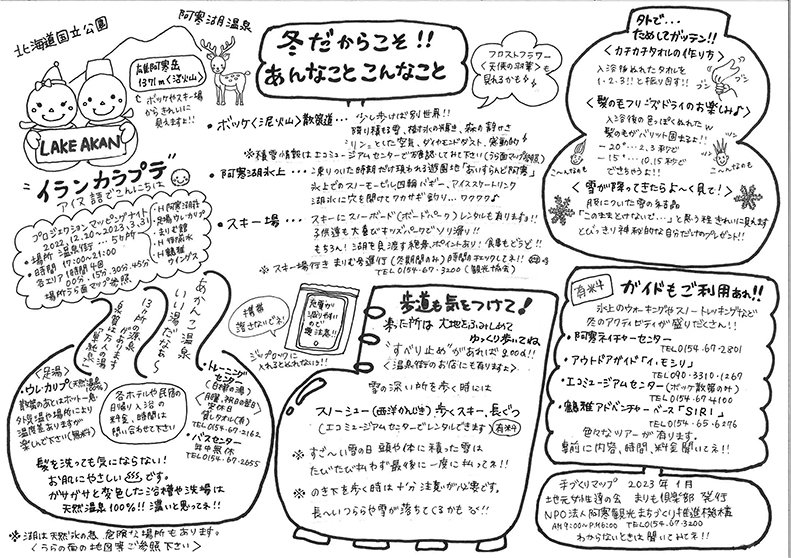 北海道国立公園
阿寒湖温泉
雄阿寒岳
1371m〈活火山〉
ボッケやスキー場
からきれいに
見えますよ!!
LAKE AKAN
冬だからこそ!!
あんなことこんなこと
フロストフラワー
〈天使の羽 〉も
見れるかも
"イランカラプテ"
アイヌ語でこんにちは
プロジェクションマッピングナイト
2022.12.20〜2023.3.31
・場所 温泉街... 5ヶ所
・時間 17:00〜21:00
各エリア1時間4回
00分.15分.30分.45分
場所うら面マップ参照
・ボッケ〈泥火山〉散策道… 少し歩けば別世界!!
降り積る雪、樹氷の輝き、森の静けさ
"リン"とした空気、ダイヤモンドダスト、感動的
※積雪情報はエコミュージアムセンターで確認して下さい(うら面マップ参照)
・阿寒湖氷上… 凍りついた時期だけ現れる遊園地「あいすらんど阿寒」
氷上のスノーモービル、四輪バギー、アイススケートリンク
湖氷に穴を開けてワカサギ釣り… ワクワク♪
・スキー場… スキーにスノーボード(ボードパーク)レンタルも有ります!!
子供達も大喜びキッズパークでソリ滑り!!
もちろん!湖を見渡す絶景ポイントあり!食事もどうぞ!!
※スキー場行きまりも号運行(冬期間のみ)時間のチェックしてネ!!
TEL 0154-67-3200 (観光協会)
外で...
ためしてガッテン!!
〈カチカチタオルの作り方〉
入浴後ぬれたタオルを
1・2・3!!と振り回す!!
〈髪のモフリーズドライのお楽しみ♪
髪の毛がバリット固まるよ!!
-20°...2.3秒で
-15°...10.15秒で
できちゃうよ!!
〈雪が降ってきたらよ〜く見て!〉
服についた雪の結晶
「この世ととけないで…」と思う程きれいに見えます
とびっきり神秘的な自分だけのプレゼント!!
あかんこ温泉
いい湯だなぁ〜
13ヶ所の源泉
があります
泉質は万人の湯
「単純泉」
〈足湯〉
・ウレ・カリプ(天然温泉100%)
散策のあとはホット一息
外気温や場所により
温度差ありますが
楽しんで下さい(無料)
各ホテルや民宿の
日帰り入浴の
料金、時間は
問い合わせて下さい
・トレーニング
センター
(白樺の湯)
月曜、祝日の翌日
定休日
貸しタオル(有)
TEL 0154-67-2162
・バスセンター
年中無休
TEL 0154-67-2655
髪を洗っても気にならない!
お肌にやさしいです。
ガサガサと変色したお浴槽や洗場は
天然温泉100%!!濃いと思ってネ!!
※湖は天然氷の為、危険な場所もあります。
〈うらの面の地図等ご参照下さい〉
携帯
落さないでネ!
充電が
減りやすい
ので
要注意!!
ジップロックに
入れるとぬれないョ!!
歩道も気をつけて!
来た所は大地をふみしめて
ゆっくり歩いてね
"すべり止め"があればgood!!
〈温泉街のお店にも有りますよ〉
雪の深い所を歩く時には
スノーシュー(西洋かんじき)歩くスキー、長ぐつ
(エコミュージアムセンターでレンタルできます)有料
※すご〜い雪の日 頭や体に積った雪は
たびたび払わず最後に一度に払ってネ!!
※のき下を歩く時は十分注意が必要です。
長〜いつららや雪が落ちてくるかも!!
有料
ガイドもご利用あれ!!
氷上のウォーキングやスノートレッキングなど
冬のアクティビティが盛りだくさん!!
・阿寒ネイチャーセンター
TEL 0154-67-2801
・アウトドアガイド「イ・モシリ」
TEL 090-3310-1267
・エコミュージアムセンター(ボッケ散策のみ)
TEL 0154-67-4100
・鶴雅アドベンチャーベース「SIRI」
TEL 0154-65-6276
色々なツアーが有ります。
事前に内容、時間、料金聞いてネ!!
手づくりマップ 2023年1月
地元女性達の会 まりも倶楽部 発行
NPO法人阿寒観光まちづくり推進機構
AM9:00〜PM6:00 TEL 0154-67-3200
わからないときは聞いてみてネ!!